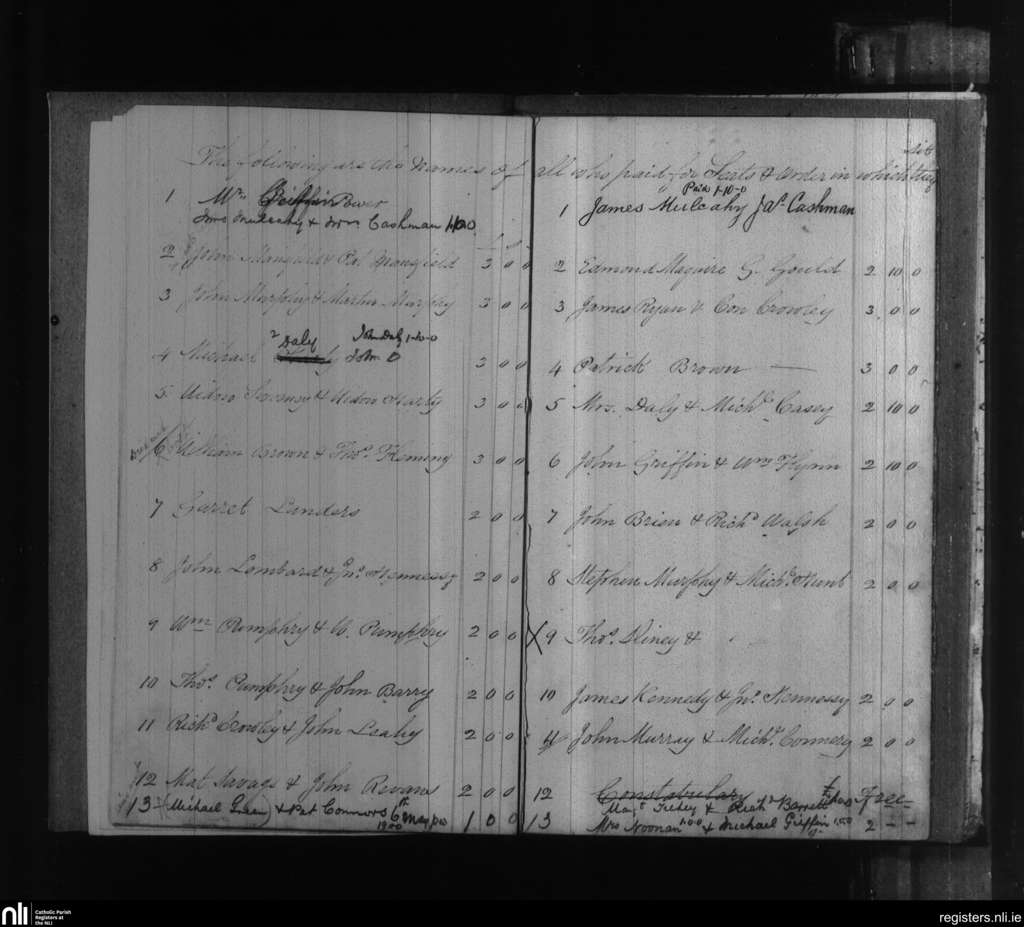 The following are the Names of all who paid for Seats & order in which they
sit
1 Wm Griffin Power
Jms Mulcahy & Wm Cashman 1.10.0
£ s d
2 John Mangfield & Pat Mangfield 3 0 0
3 John Murphy & Martin Murphy 3 0 0
John Daly 1-10-0
4 Michael Daly John 3 0 0
5 Widow & Widow Harty 3 0 0
6 William Brown & Thos. Fleming 3 0 0
7 Garret Landers 2 0 0
8 John Lombard & Jno. Hennessy 2 0 0
9 Wm Pumphry & W. Pumphry 2 0 0
10 Thos. Pumphry & John Barry 2 0 0
11 Richd Crowley & John Leahy 2 0 0
12 Mat Savage & John Revans 2 0 0
13 (Michael) & Pat Connors 6th May pd 1 0 0
1900
Paid 1-10-0
1 James Mulcahy Jas. Cashman
2 Edmond Maguire G. Gould 2 10 0
3 James Ryan & Con Crowley 3 0 0
4 Patrick Brown 3 0 0
5 Mrs. Daly & Michl. Casey 2 10 0
6 John Griffin & Wm Flynn 2 10 0
7 John Brien & Richd Walsh 2 0 0
8 Stephen Murphy & Michl. Hunt 2 0 0
X 9 Thos. Diney &
10 James Kennedy & Jno. Hennessy 2 0 0
11 John Murray & Michl. Connery 2 0 0
12 Constabulary Free
& Richd Barrett
13 Mrs Noonan 1.0.0 & Michael Griffin 1.0.0 2 - -
nli Catholic Parish
Registers at
the NLI
registers.nli.ie